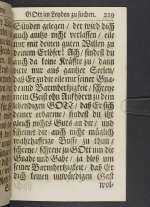 GOtt im Leyden zu suchen. 229
Sünden gelegen / der wird dich
auch anitzo nicht verlassen / ein
nur mit deinen guten Willen zu
deinem Erlöser! Ach / findest du
auch da keine Kräffte zu / dann
bitte nur aus gantzer Seelen /
daß Er zu die eile mit seiner Gna
und Barmhertzigkeit / schreye
im Geist ohn Auffhören zu dem
lebendigen GOTT / daß Er sich
deiner erbarme / findest du ihr
gleich nichts Guts an dir / und
scheinet dir auch nicht möglich
wahrhafftige Buß zu thun /
schreye / schreye zu GOtt um die
Gnade und Gabe / ja bloß um
seiner Barmhertzigkeit / daß Er
dich seinen unwürdigen Gast
wol-